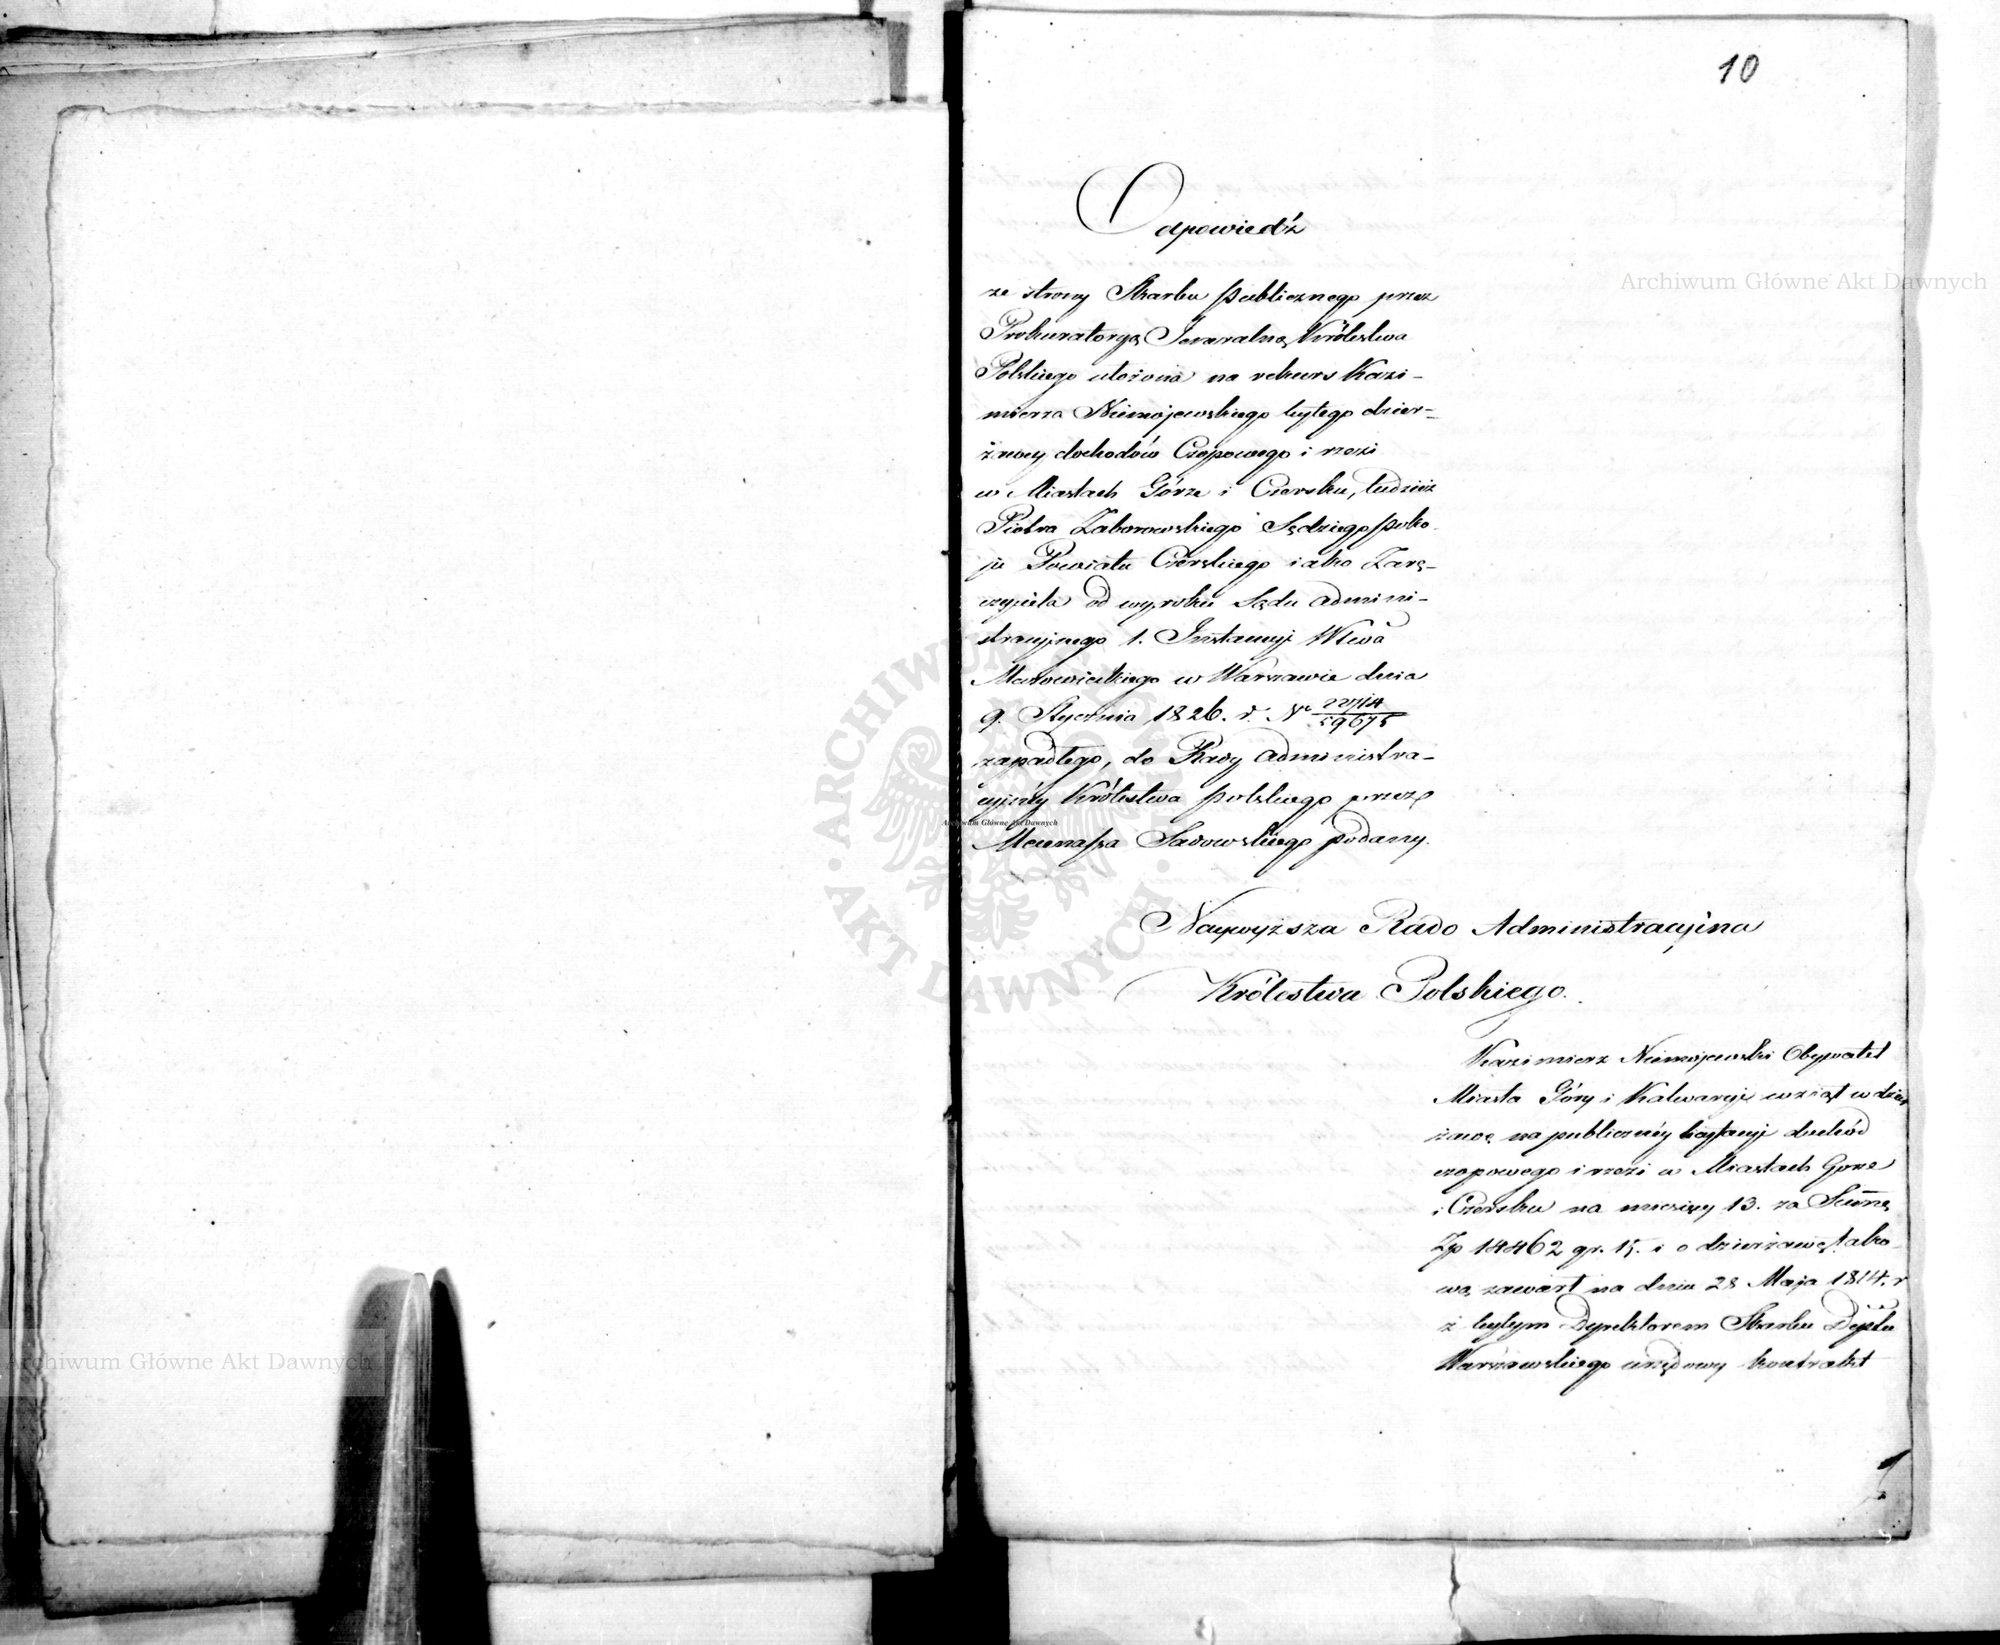 10
Odpowiedź
ze strony Skarbu publicznego przez
Prokuratoryą Jeneralną Królestwa
Polskiego ułożona na rekurs Kazi-
mierza Niemojewskiego byłego dzier-
żawcy dochodów Czopowego i rzezi
w Miastach Górze i Czersku, tudzież
Piotra Zaborowskiego Sędziego poko-
ju Powiatu Czerskiego iako Zarę-
czyciela od wyroku Sądu admini-
stracyjnego 1. Instancyi Wtwa
Mazowieckiego w Warszawie dnia
9. Stycznia 1826. r. Nº
59675
zapadłego, do Rady administra-
cyjnéy Królestwa polskiego przez
Mecenassa Sadowskiego podany.
Naywyższa Rado Administracyina
Królestwa Polskiego.
Kazimierz Niemojewski Obywatel
Miasta Góry i Kalwaryi wziął w dzier
żawę na publicznéy licytacyi dochód
czopowego i rzezi w Miastach Gorze
i Czersku na miesięcy 13. za Summę
Zp 14462 gr. 15. i o dzierżawę tako-
wą zawarł na dniu 28 Maja 1814. r
z byłym Dyrektorem Skarbu Deptu
Warszawskiego urzędowy kontrakt
Archiwum Główne Akt Dawnych
Archiwum Główne Akt Dawnych
Archiwum Główne Akt Dawnych